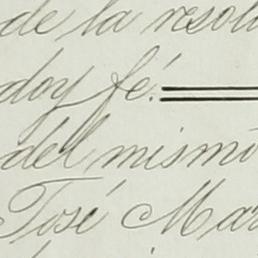 de la resolu
doy fé.
del mismo
José Mar